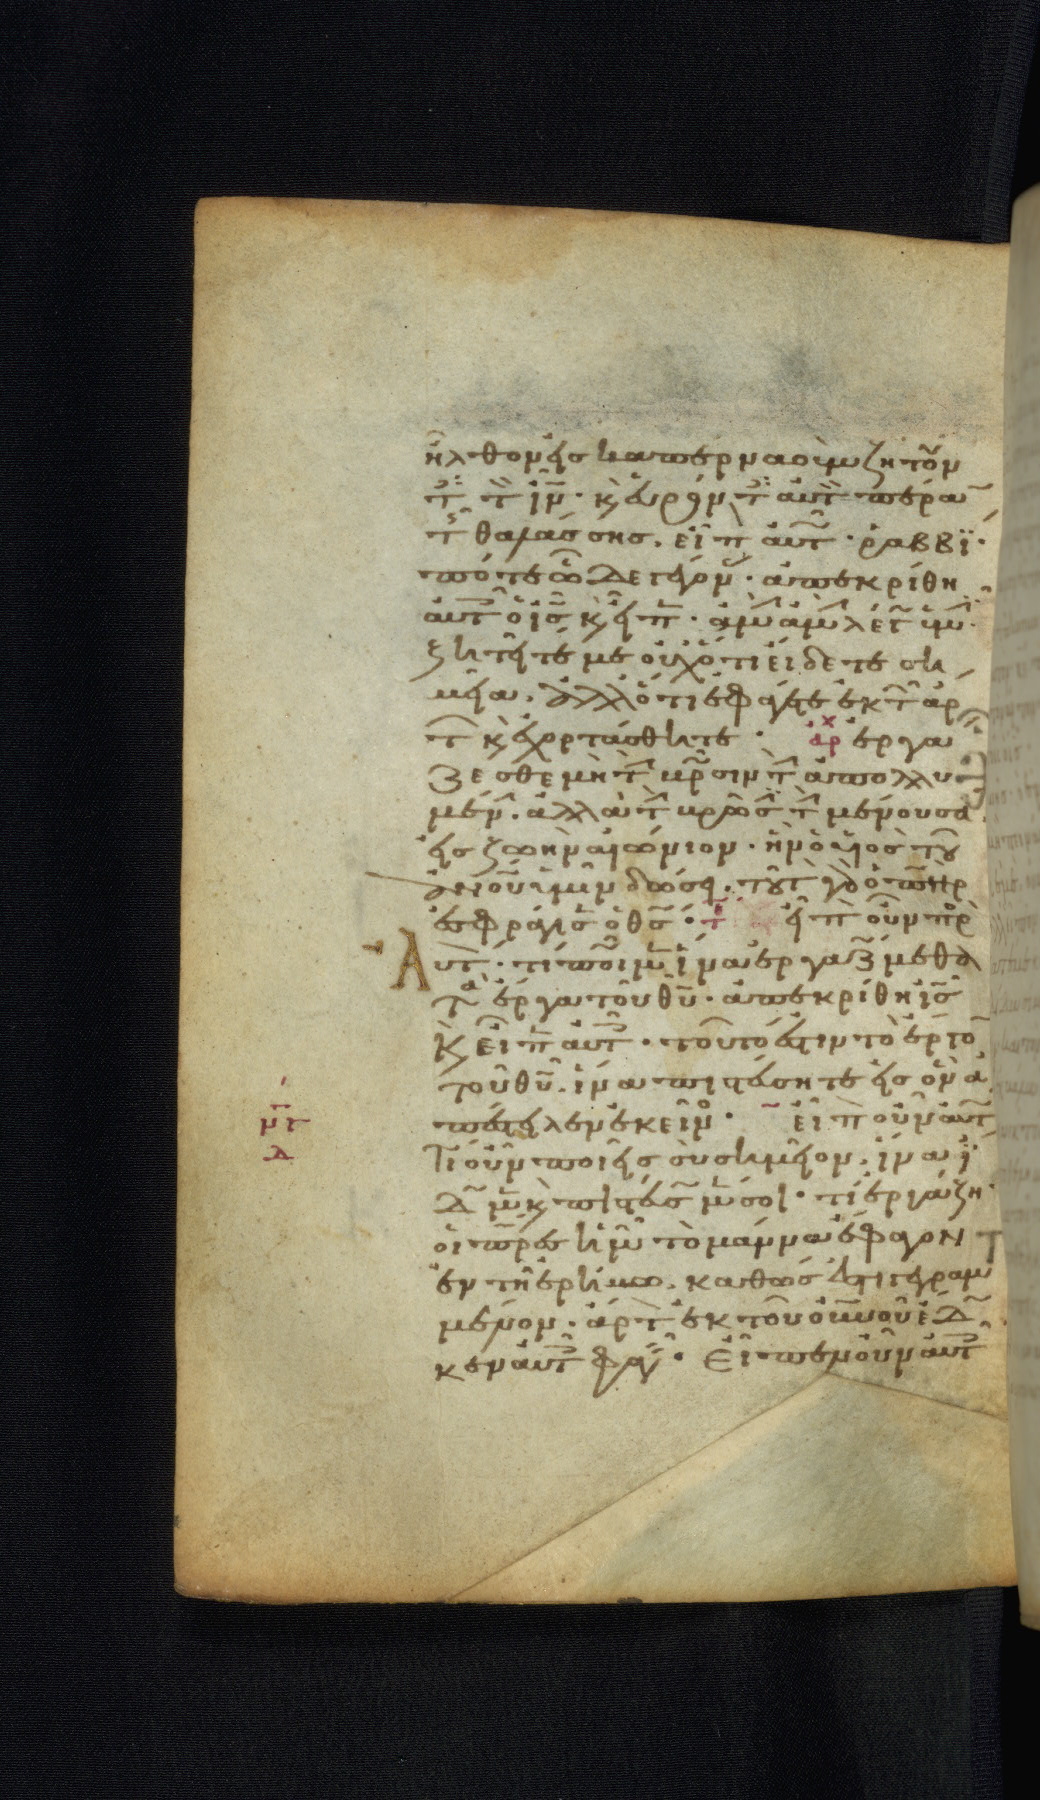 ἦλθον εἰς καπερναοὺμ ζητοῦν
τ τὸν ἰν· κ εὑρόν τ αυτὸ πέραν
τ θαλάσσης. εἶπ αὐτ· ῥαββῒ·
πότε ὧδε γέγον· ἀπεκρίθη
αὐτ ὁ ις κ εἶπ· ἀμὴν ἀμὴν λέγ ὑμ·
ζητεῖτέ με οὐχ ὅτι εἴδετε ση
μεῖα. ἀλλ' ὅτι ἐφάγετε ἐκ τ ἄρ
τ κ ἐχορτάσθητε· ἀρχ ἐργα
ζεσθε μὴ τ βρῶσιν τ ἀπολλυ
μέν. ἀλλὰ τ βρῶσ τ μένουσα
εἰς ζωὴν αἰώνιον. ἣν ὁ υἱὸς τοῦ
ἀνου ὑμῖν δώσει. τοῦτ γὰρ ὁ πηρ
ἐσφράγισ ὁ θς· τ εἶπ οὖν πρ
Αυτ· τί ποιῶμ ἵνα ἐργαζώμεθα
τὰ ἔργα τοῦ θυ· ἀπεκρίθη ις
κ εἶπ αὐτ· τοῦτό ἐστιν τὸ ἔργο
τοῦ θυ. ἵνα πιστεύσητε εἰς ὃν ἀ
πέστειλεν ἐκεῖν· εἶπ οὖν αὐτ
Τί οὖν ποιεῖς σὺ σημεῖον. ἵνα ἴ
δωμ κ πιστεύσωμ σοι· τί ἐργάζη·
οἱ πρες ἡμ τὸ μάννα ἔφαγον
ἐν τῇ ἐρήμω. καθώς ἐστι γεγραμ
μένον. ἄρτ ἐκ τοῦ οὐνου ἔδω
κεν αὐτ φαγ. Εἶπεν οὖν αὐτ